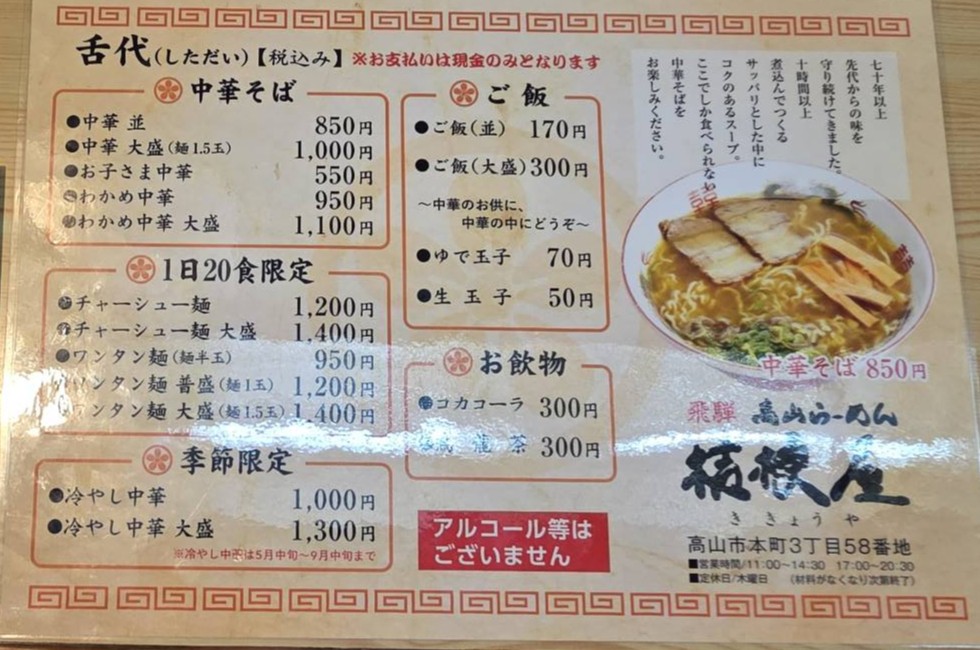 舌代(しただい)【税込み】※お支払いは現金のみとなります
中華そば
●中華 並 850円
●中華 大盛(麺1.5玉) 1,000円
●お子さま中華 550円
●わかめ中華 950円
●わかめ中華 大盛 1,100円
1日20食限定
●チャーシュー麺 1,200円
●チャーシュー麺 大盛 1,400円
●ワンタン麺(麺半玉) 950円
●ワンタン麺 普盛(麺1玉) 1,200円
ワンタン麺 大盛(麺1.5玉) 1,400円
季節限定
●冷やし中華 1,000円
●冷やし中華 大盛 1,300円
※冷やし中華は5月中旬〜9月中旬まで
ご飯
●ご飯(並) 170円
●ご飯(大盛) 300円
〜中華のお供に、
中華の中にどうぞ〜
●ゆで玉子 70円
●生玉子 50円
お飲物
●コカコーラ 300円
龍茶 300円
アルコール等は
ございません
七十年以上
先代からの味を
守り続けてきました。
十時間以上
煮込んでつくる
サッパリとした中に
コクのあるスープ。
ここでしか食べられない
中華そばを
お楽しみください。
中華そば 850円
飛騨 高山らーめん
桔梗屋
ききょうや
高山市本町3丁目58番地
■営業時間/11:00〜14:30 17:00〜20:30
■定休日/木曜日 (材料がなくなり次第終了)